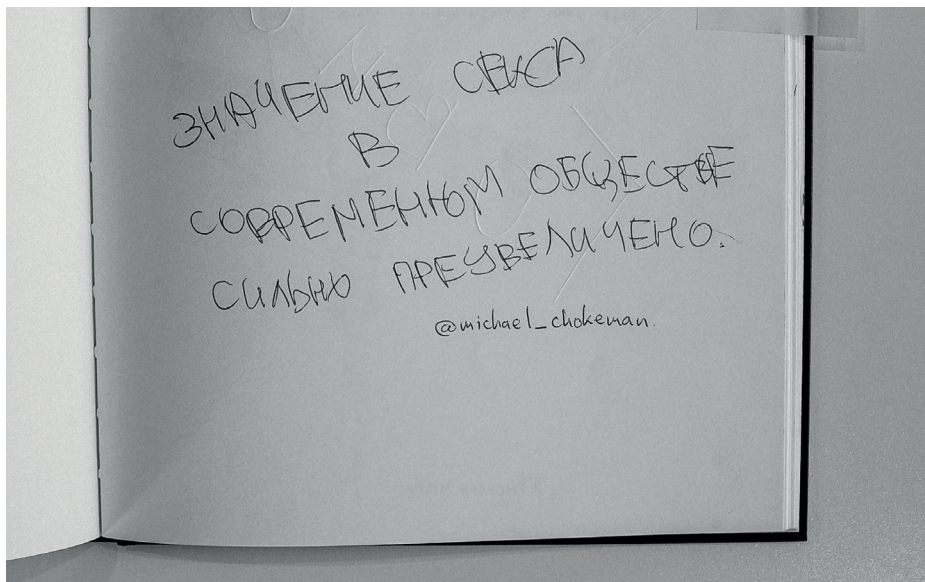 ЗНАЧЕНИЕ СЕКСА
В
СОВРЕМЕННОМ ОБЩЕСТВЕ
СИЛЬНО ПРЕУВЕЛИЧЕНО.
@michael_chokeman.